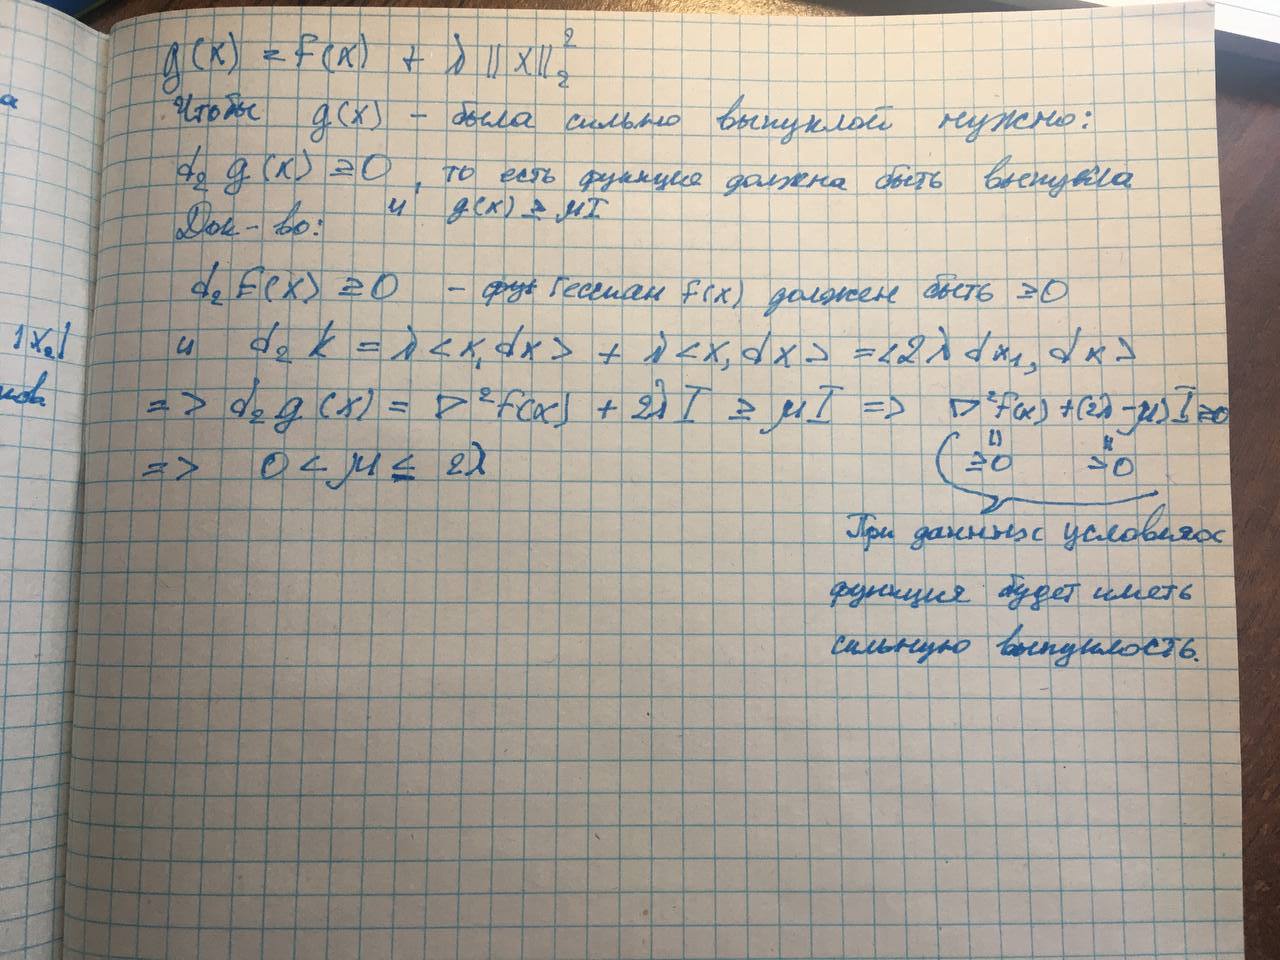 а
|x₂|
нов
g(x) = f(x) + λ ||x||₂²
Чтобы g(x) - была сильно выпуклой нужно:
d₂ g(x) ≥ 0, то есть функция должна быть выпукла
и g(x) ≥ μI
Док-во:
d₂ f(x) ≥ 0 - Гессиан f(x) должен быть ≥0
и d₂ k = λ <x, dx> + λ <x, dx> = <2λ dx₁, dx>
=> d₂ g(x) = ∇²f(x) + 2λI ≥ μI => ∇²f(x) + (2λ-μ)I ≥0
≥0 >0
=> 0 < μ ≤ 2λ
При данных условиях
функция будет иметь
сильную выпуклость.